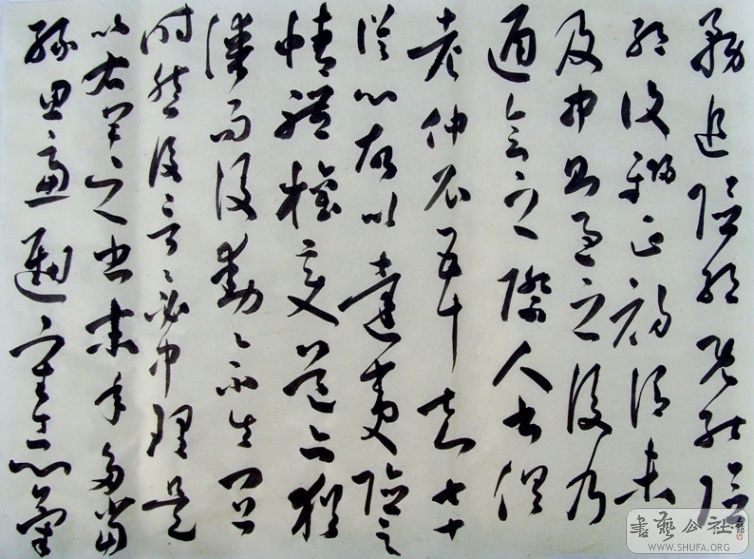 務追險絕既能險
絕復歸平正初謂未
及中則過之後乃
通會之際人書俱
老仲尼五十知七十
從心故以達夷險之
情體權變道亦猶
謀而後動〻不失宜
時然後言〻必中理是
以右軍之書末年多當
緣思慮通審志氣
書藝公社
WWW.SHUFA.ORG